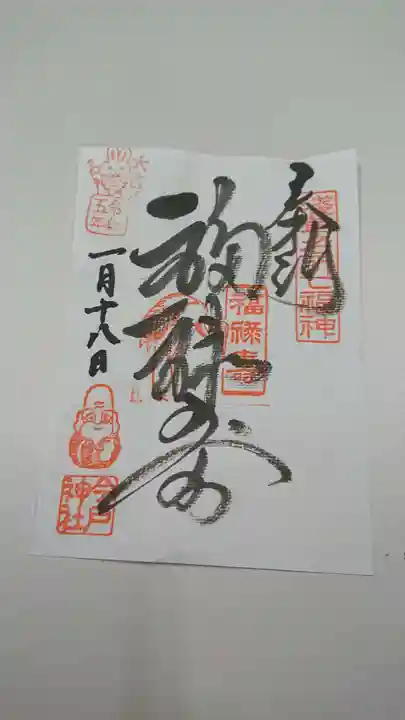 奉拝
七福神
福禄寿
福禄寿
五年
一月十八日
今戸神社